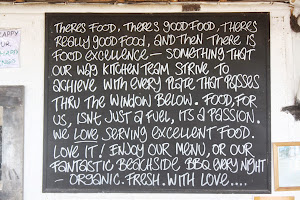 THERES FOOD, THERE'S GOOD FOOD, THERE'S
REALLY GOOD FOOD, AND THEN THERE IS
FOOD EXCELLENCE – SOMETHING THAT
OUR WAY KITCHEN TEAM STRIVE TO
ACHIEVE WITH EVERY PLATE THAT PASSES
THRU THE WINDOW BELOW. FOOD, FOR
US, ISNT JUST A FUEL, IT'S A PASSION.
WE LOVE SERVING EXCELLENT FOOD.
LOVE IT! ENJOY OUR MENU, OR OUR
FANTASTIC BEACHSIDE BBQ EVERY NIGHT
– ORGANIC. FRESH. WITH LOVE....
HAPPY